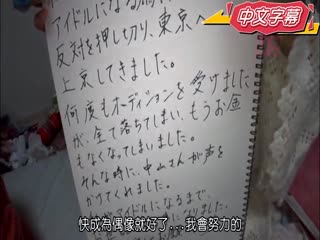 アイドルになる為
反対を押し切り、東京へ
上京してきました。
何度もオーディションを受けました
が、全て落ちてしまい、もうお金
もなくなってしまいました。
そんな時に、中山さんが声を
かけてくれました。
アイドルになるまで
中文字幕
快成為偶像就好了...我會努力的